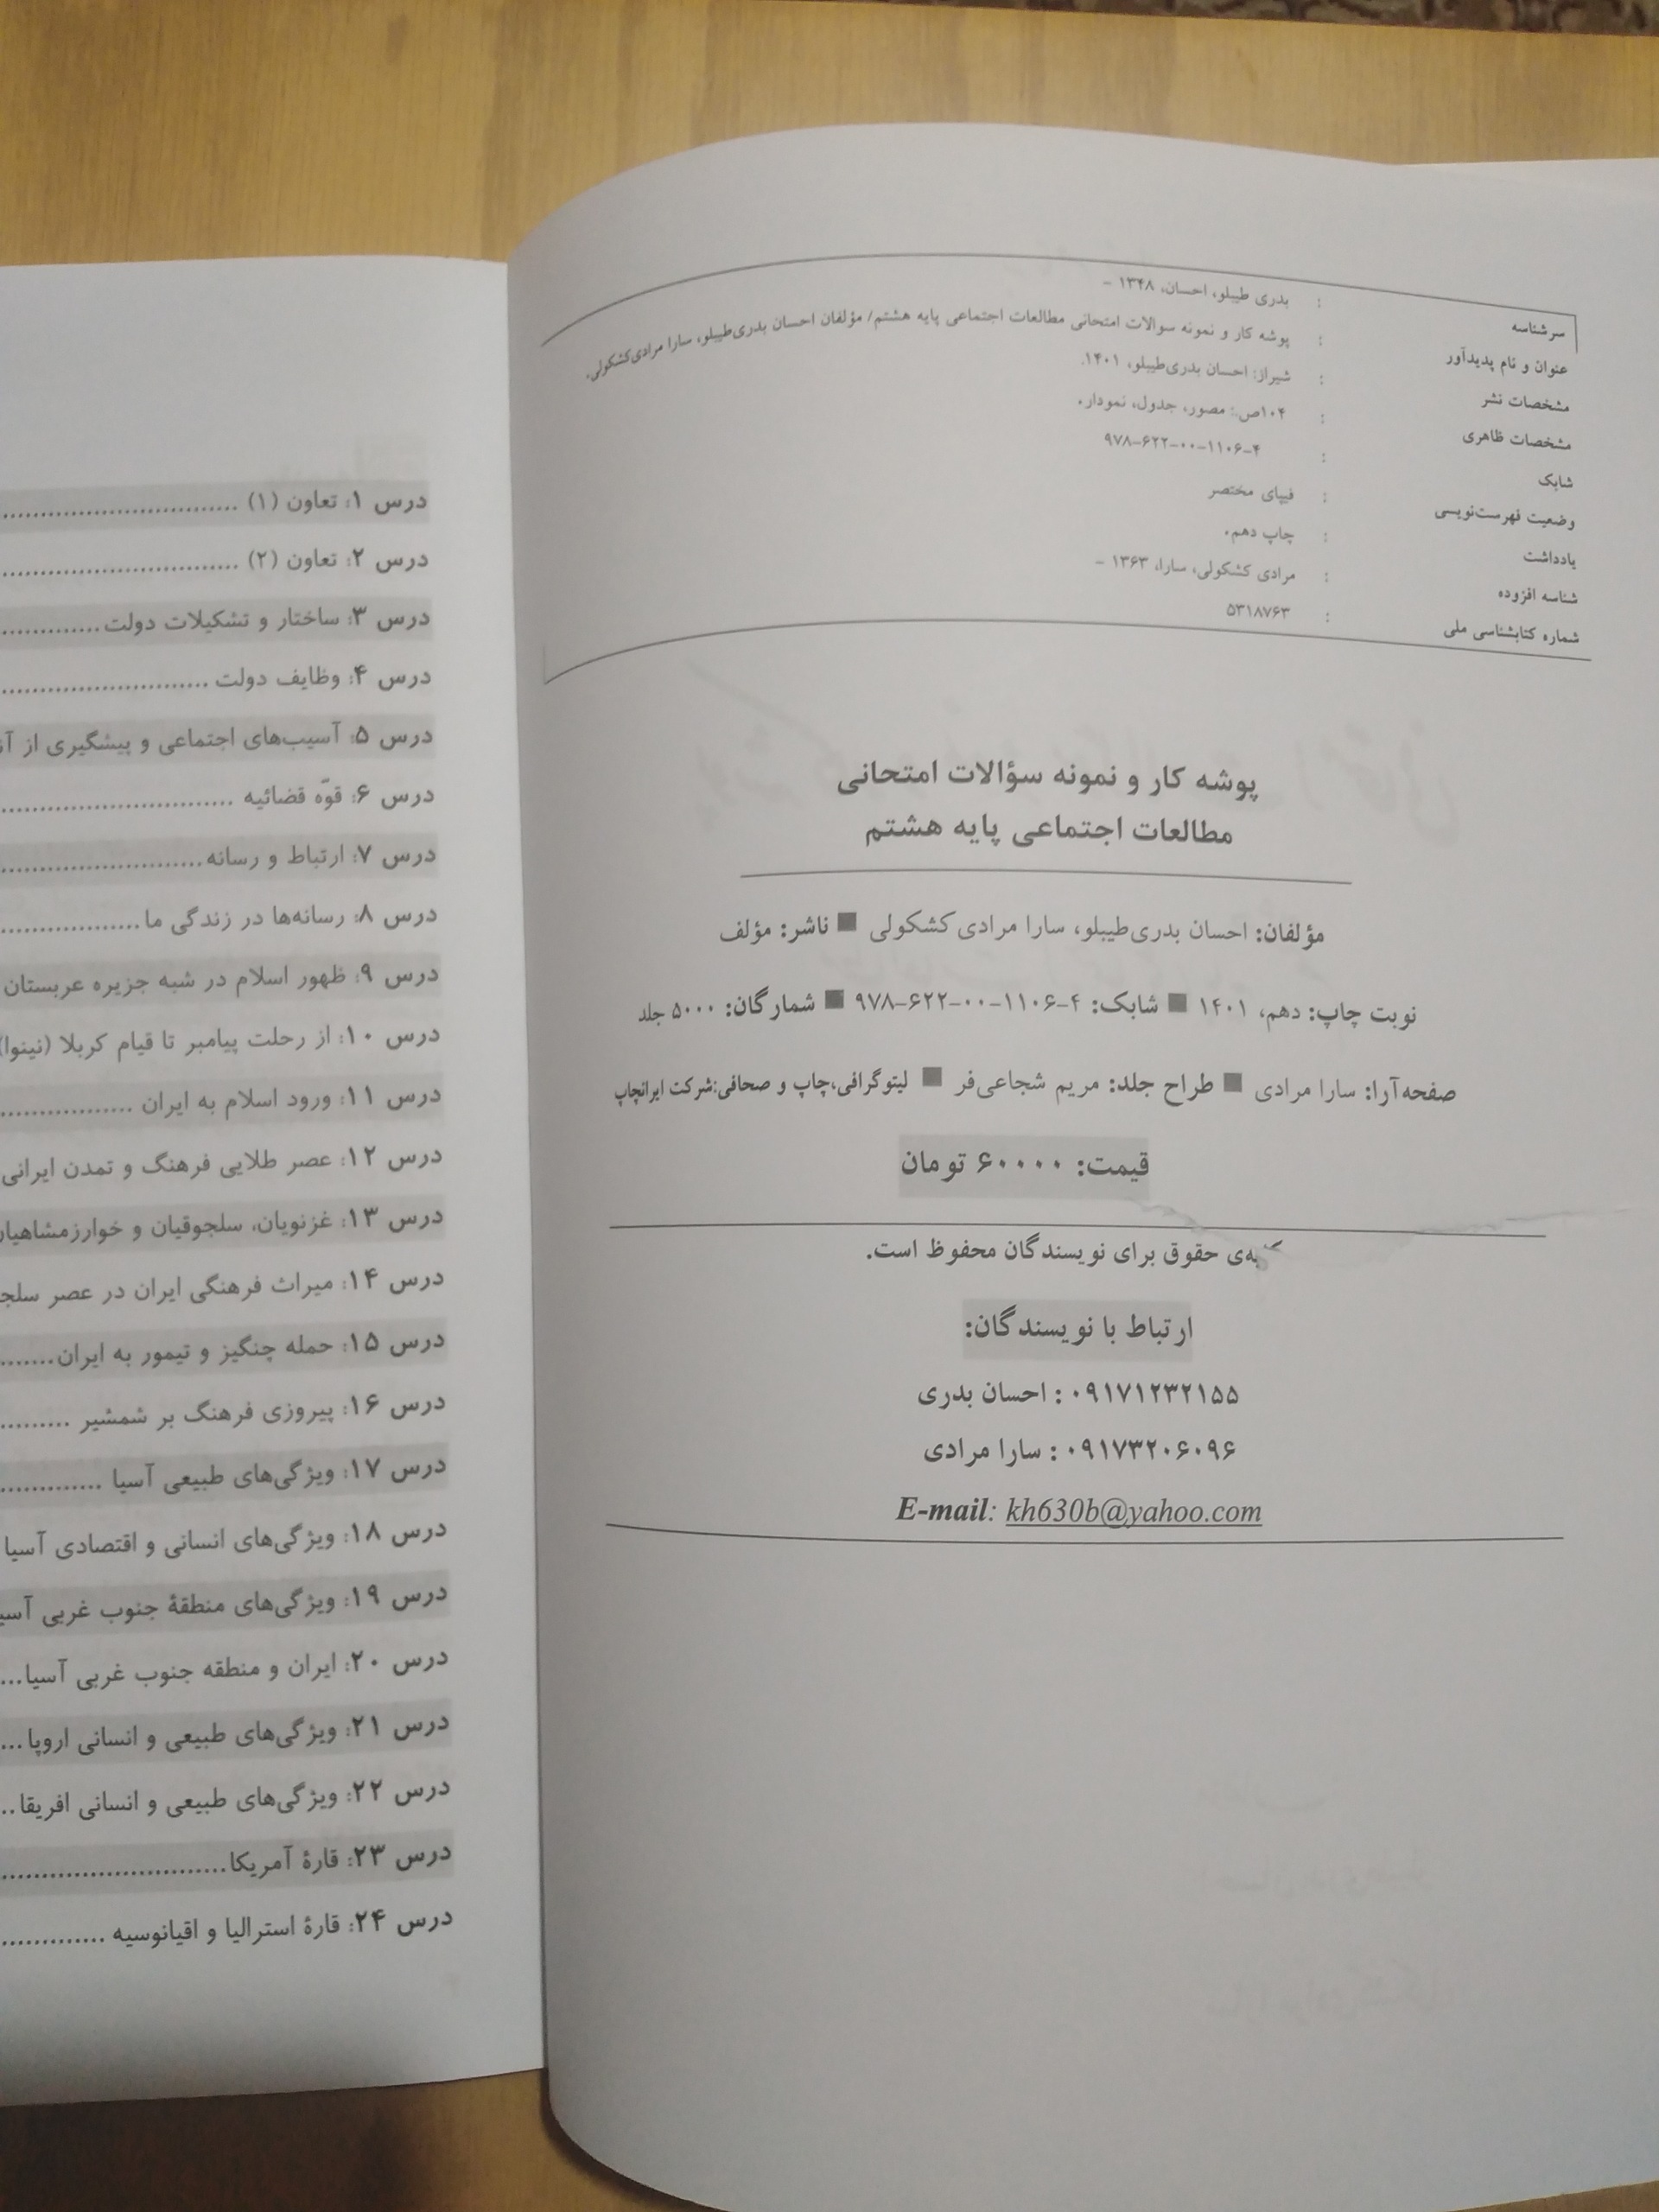 سرشناسه : بدری طیبلو، احسان، ۱۳۴۸ -
عنوان و نام پدیدآور : پوشه کار و نمونه سوالات امتحانی مطالعات اجتماعی پایه هشتم/ مؤلفان احسان بدری‌طیبلو، سارا مرادی‌کشکولی.
مشخصات نشر : شیراز: احسان بدری‌طیبلو، ۱۴۰۱.
مشخصات ظاهری : ۱۰۴ص.: مصور، جدول، نمودار.
شابک : ۹۷۸-۶۲۲-۰۰-۱۱۰۶-۴
وضعیت فهرست‌نویسی : فیپای مختصر
یادداشت : چاپ دهم.
شناسه افزوده : مرادی کشکولی، سارا، ۱۳۶۳ -
شماره کتابشناسی ملی : ۵۳۱۸۷۶۳
پوشه کار و نمونه سؤالات امتحانی
مطالعات اجتماعی پایه هشتم
مؤلفان: احسان بدری‌طیبلو، سارا مرادی‌کشکولی ■ ناشر: مؤلف
نوبت چاپ: دهم، ۱۴۰۱ ■ شابک: ۴-۱۱۰۶-۰۰-۶۲۲-۹۷۸ ■ شمارگان: ۵۰۰۰ جلد
صفحه‌آرا: سارا مرادی ■ طراح جلد: مریم شجاعی‌فر ■ لیتوگرافی،چاپ و صحافی:شرکت ایرانچاپ
قیمت: ۶۰۰۰۰ تومان
حقوق برای نویسندگان محفوظ است.
ارتباط با نویسندگان:
۰۹۱۷۱۲۳۲۱۵۵ : احسان بدری
۰۹۱۷۳۲۰۶۰۹۶ : سارا مرادی
E-mail: kh630b@yahoo.com
درس ۱: تعاون (۱) ...............................
درس ۲: تعاون (۲) ...............................
درس ۳: ساختار و تشکیلات دولت.............
درس ۴: وظایف دولت ...........................
درس ۵: آسیب‌های اجتماعی و پیشگیری از
درس ۶: قوّه قضائیه ..............................
درس ۷: ارتباط و رسانه..........................
درس ۸: رسانه‌ها در زندگی ما..................
درس ۹: ظهور اسلام در شبه جزیره عربستان
درس ۱۰: از رحلت پیامبر تا قیام کربلا (نینوا)
درس ۱۱: ورود اسلام به ایران .................
درس ۱۲: عصر طلایی فرهنگ و تمدن ایرانی
درس ۱۳: غزنویان، سلجوقیان و خوارزمشاهیان
درس ۱۴: میراث فرهنگی ایران در عصر
درس ۱۵: حمله چنگیز و تیمور به ایران.......
درس ۱۶: پیروزی فرهنگ بر شمشیر .........
درس ۱۷: ویژگی‌های طبیعی آسیا .............
درس ۱۸: ویژگی‌های انسانی و اقتصادی آسیا
درس ۱۹: ویژگی‌های منطقهٔ جنوب غربی
درس ۲۰: ایران و منطقه جنوب غربی آسیا...
درس ۲۱: ویژگی‌های طبیعی و انسانی اروپا...
درس ۲۲: ویژگی‌های طبیعی و انسانی افریقا..
درس ۲۳: قارهٔ آمریکا.............................
درس ۲۴: قارهٔ استرالیا و اقیانوسیه .............